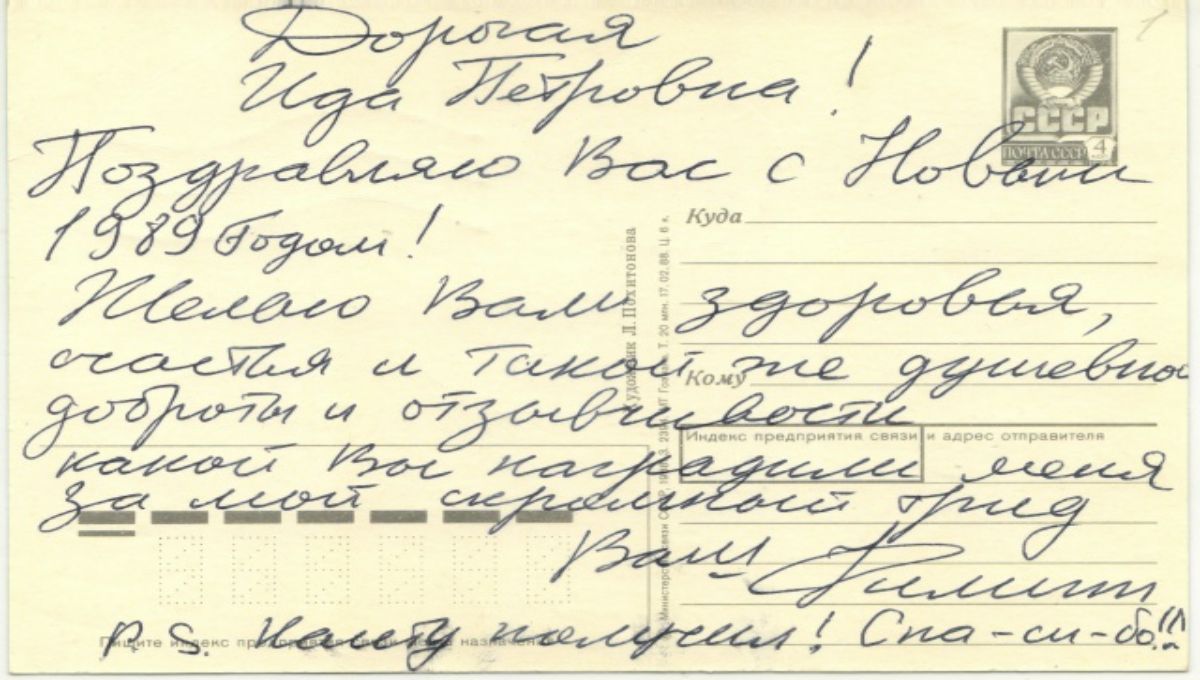 Дорогая
Ида Петровна!
Поздравляю Вас с Новым
1989 Годом!
Желаю Вам здоровья,
счастья и такой же душевной
доброты и отзывчивости
какой Вы наградили меня
за мой скромный труд
Ваш
P.S. Книгу получил! Спа-си-бо!!!
СССР
ПОЧТА СССР 4
Куда
Кому
Индекс предприятия связи и адрес отправителя
Художник Л. Похитонова
Министерство связи СССР, 1988. З. 2394. ППФ Гознака. Т. 20 млн. 17.02.88. Ц. 6 к.
Пишите индекс предприятия связи места назначения